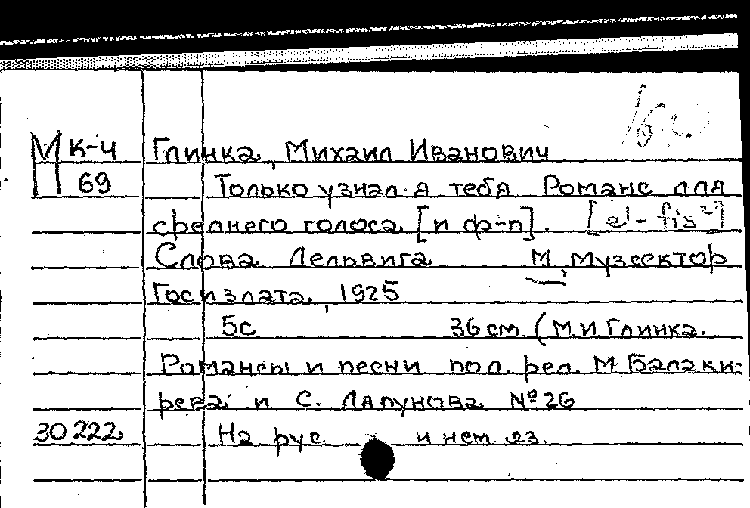 М к-ч Глинка, Михаил Иванович
П 69 Только узнал я тебя Романс для
среднего голоса [и ф-п]. [e1- fis2]
Слова Дельвига М, Музсектор
Госиздата, 1925
5с 36 см (М.И Глинка.
Романсы и песни под. ред. М Балаки-
рева и С. Ляпунова №26
30222 На рус. и нем яз.